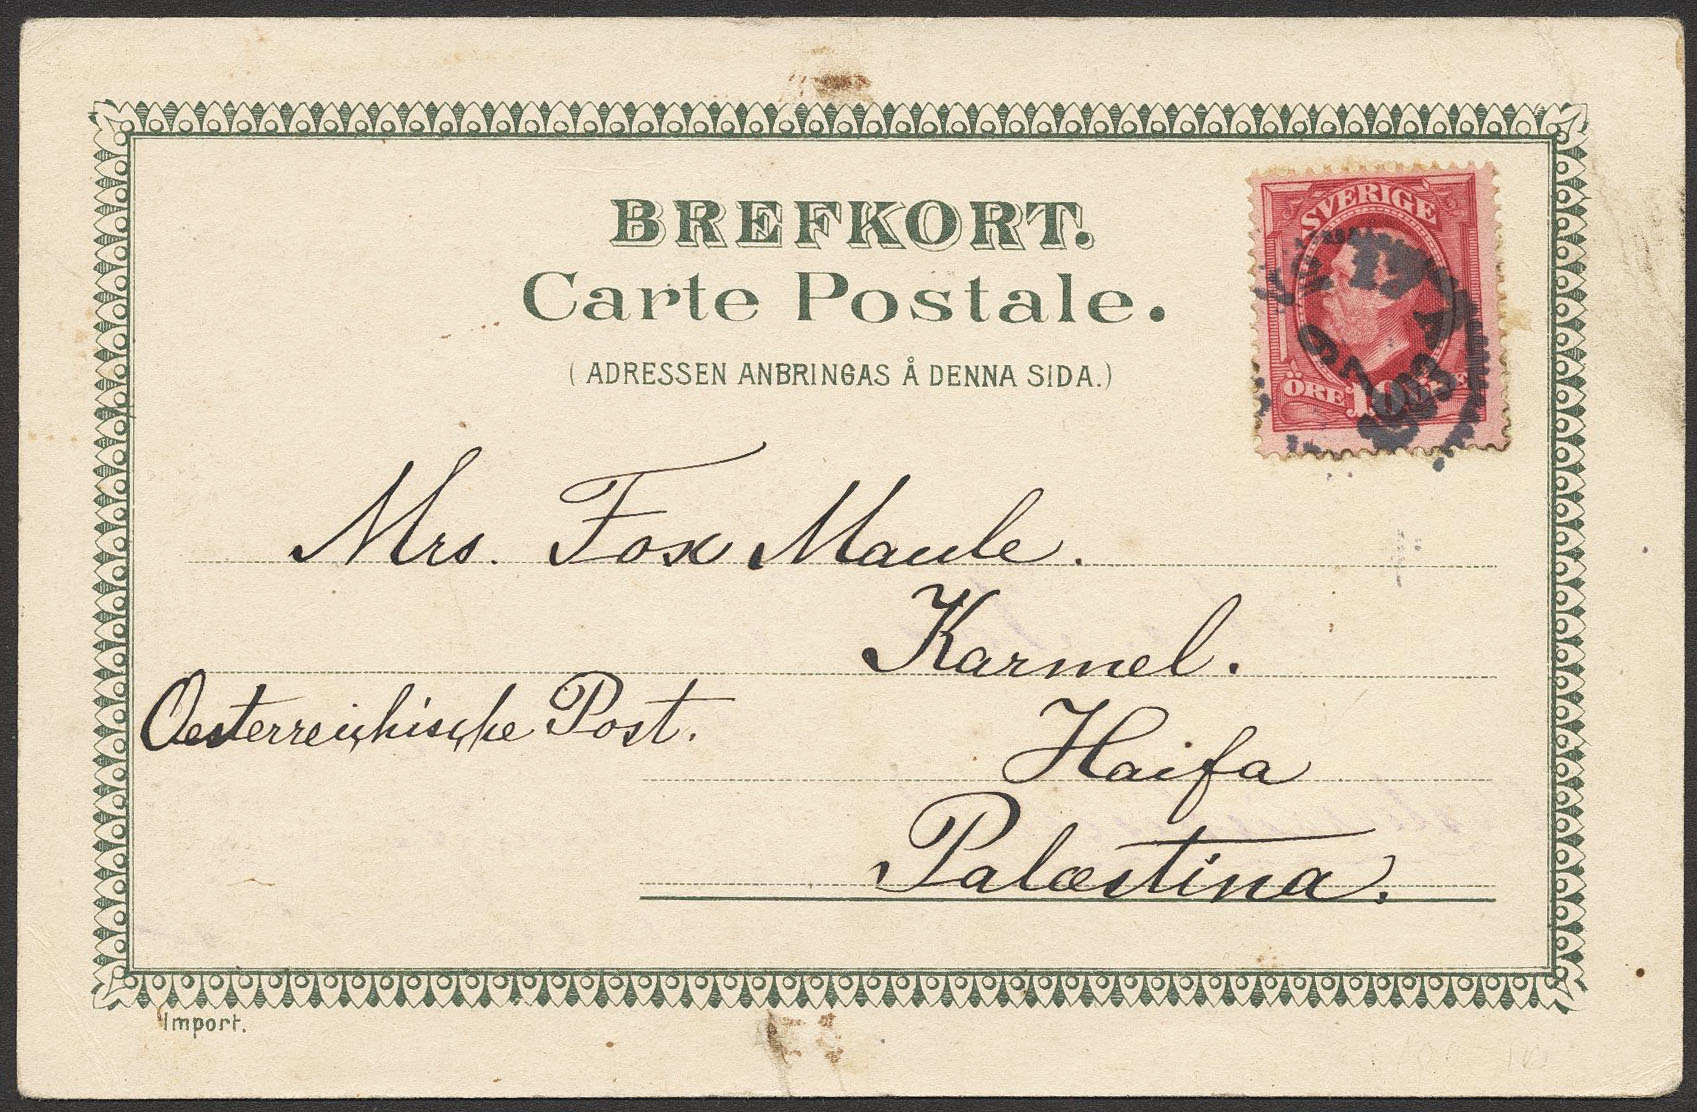 BREFKORT.
Carte Postale.
(ADRESSEN ANBRINGAS Å DENNA SIDA.)
SVERIGE
ÖRE 10 ÖRE
1903
Mrs. Fox Maule.
Karmel.
Oesterreichische Post.
Haifa
Palæstina.
Import.